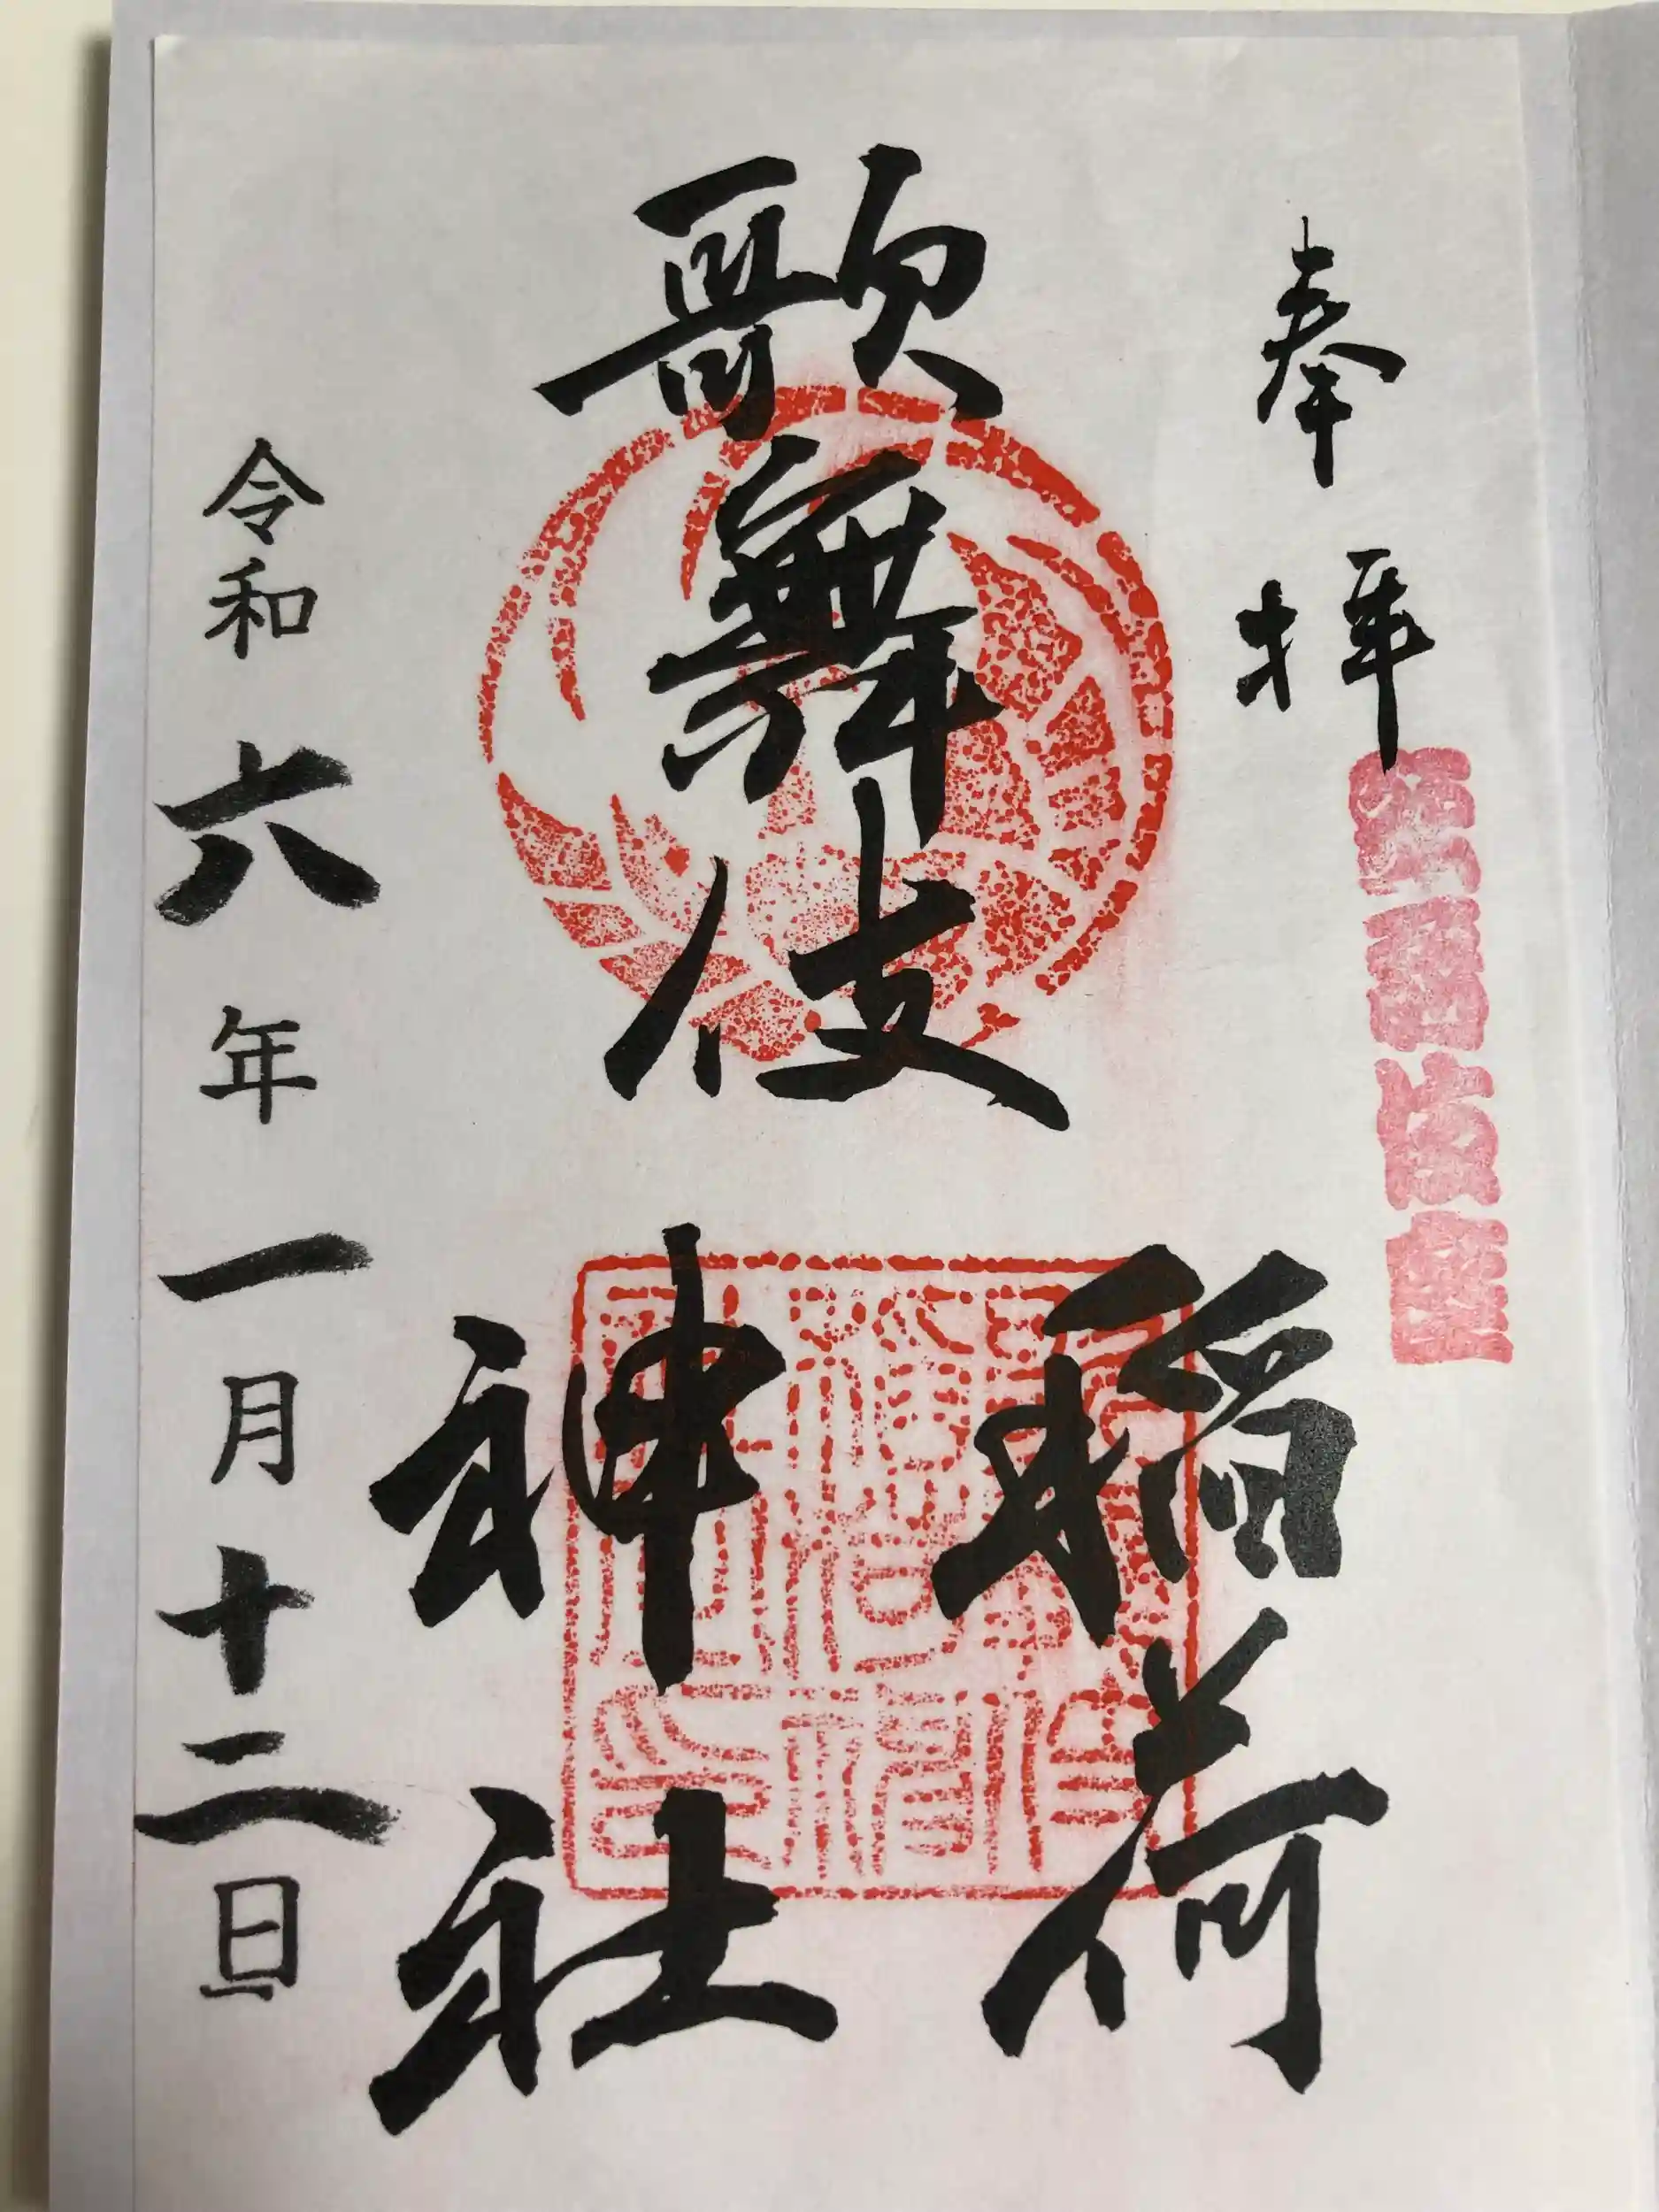 奉拝
歌舞伎
稲荷
神社
令和六年一月十二日